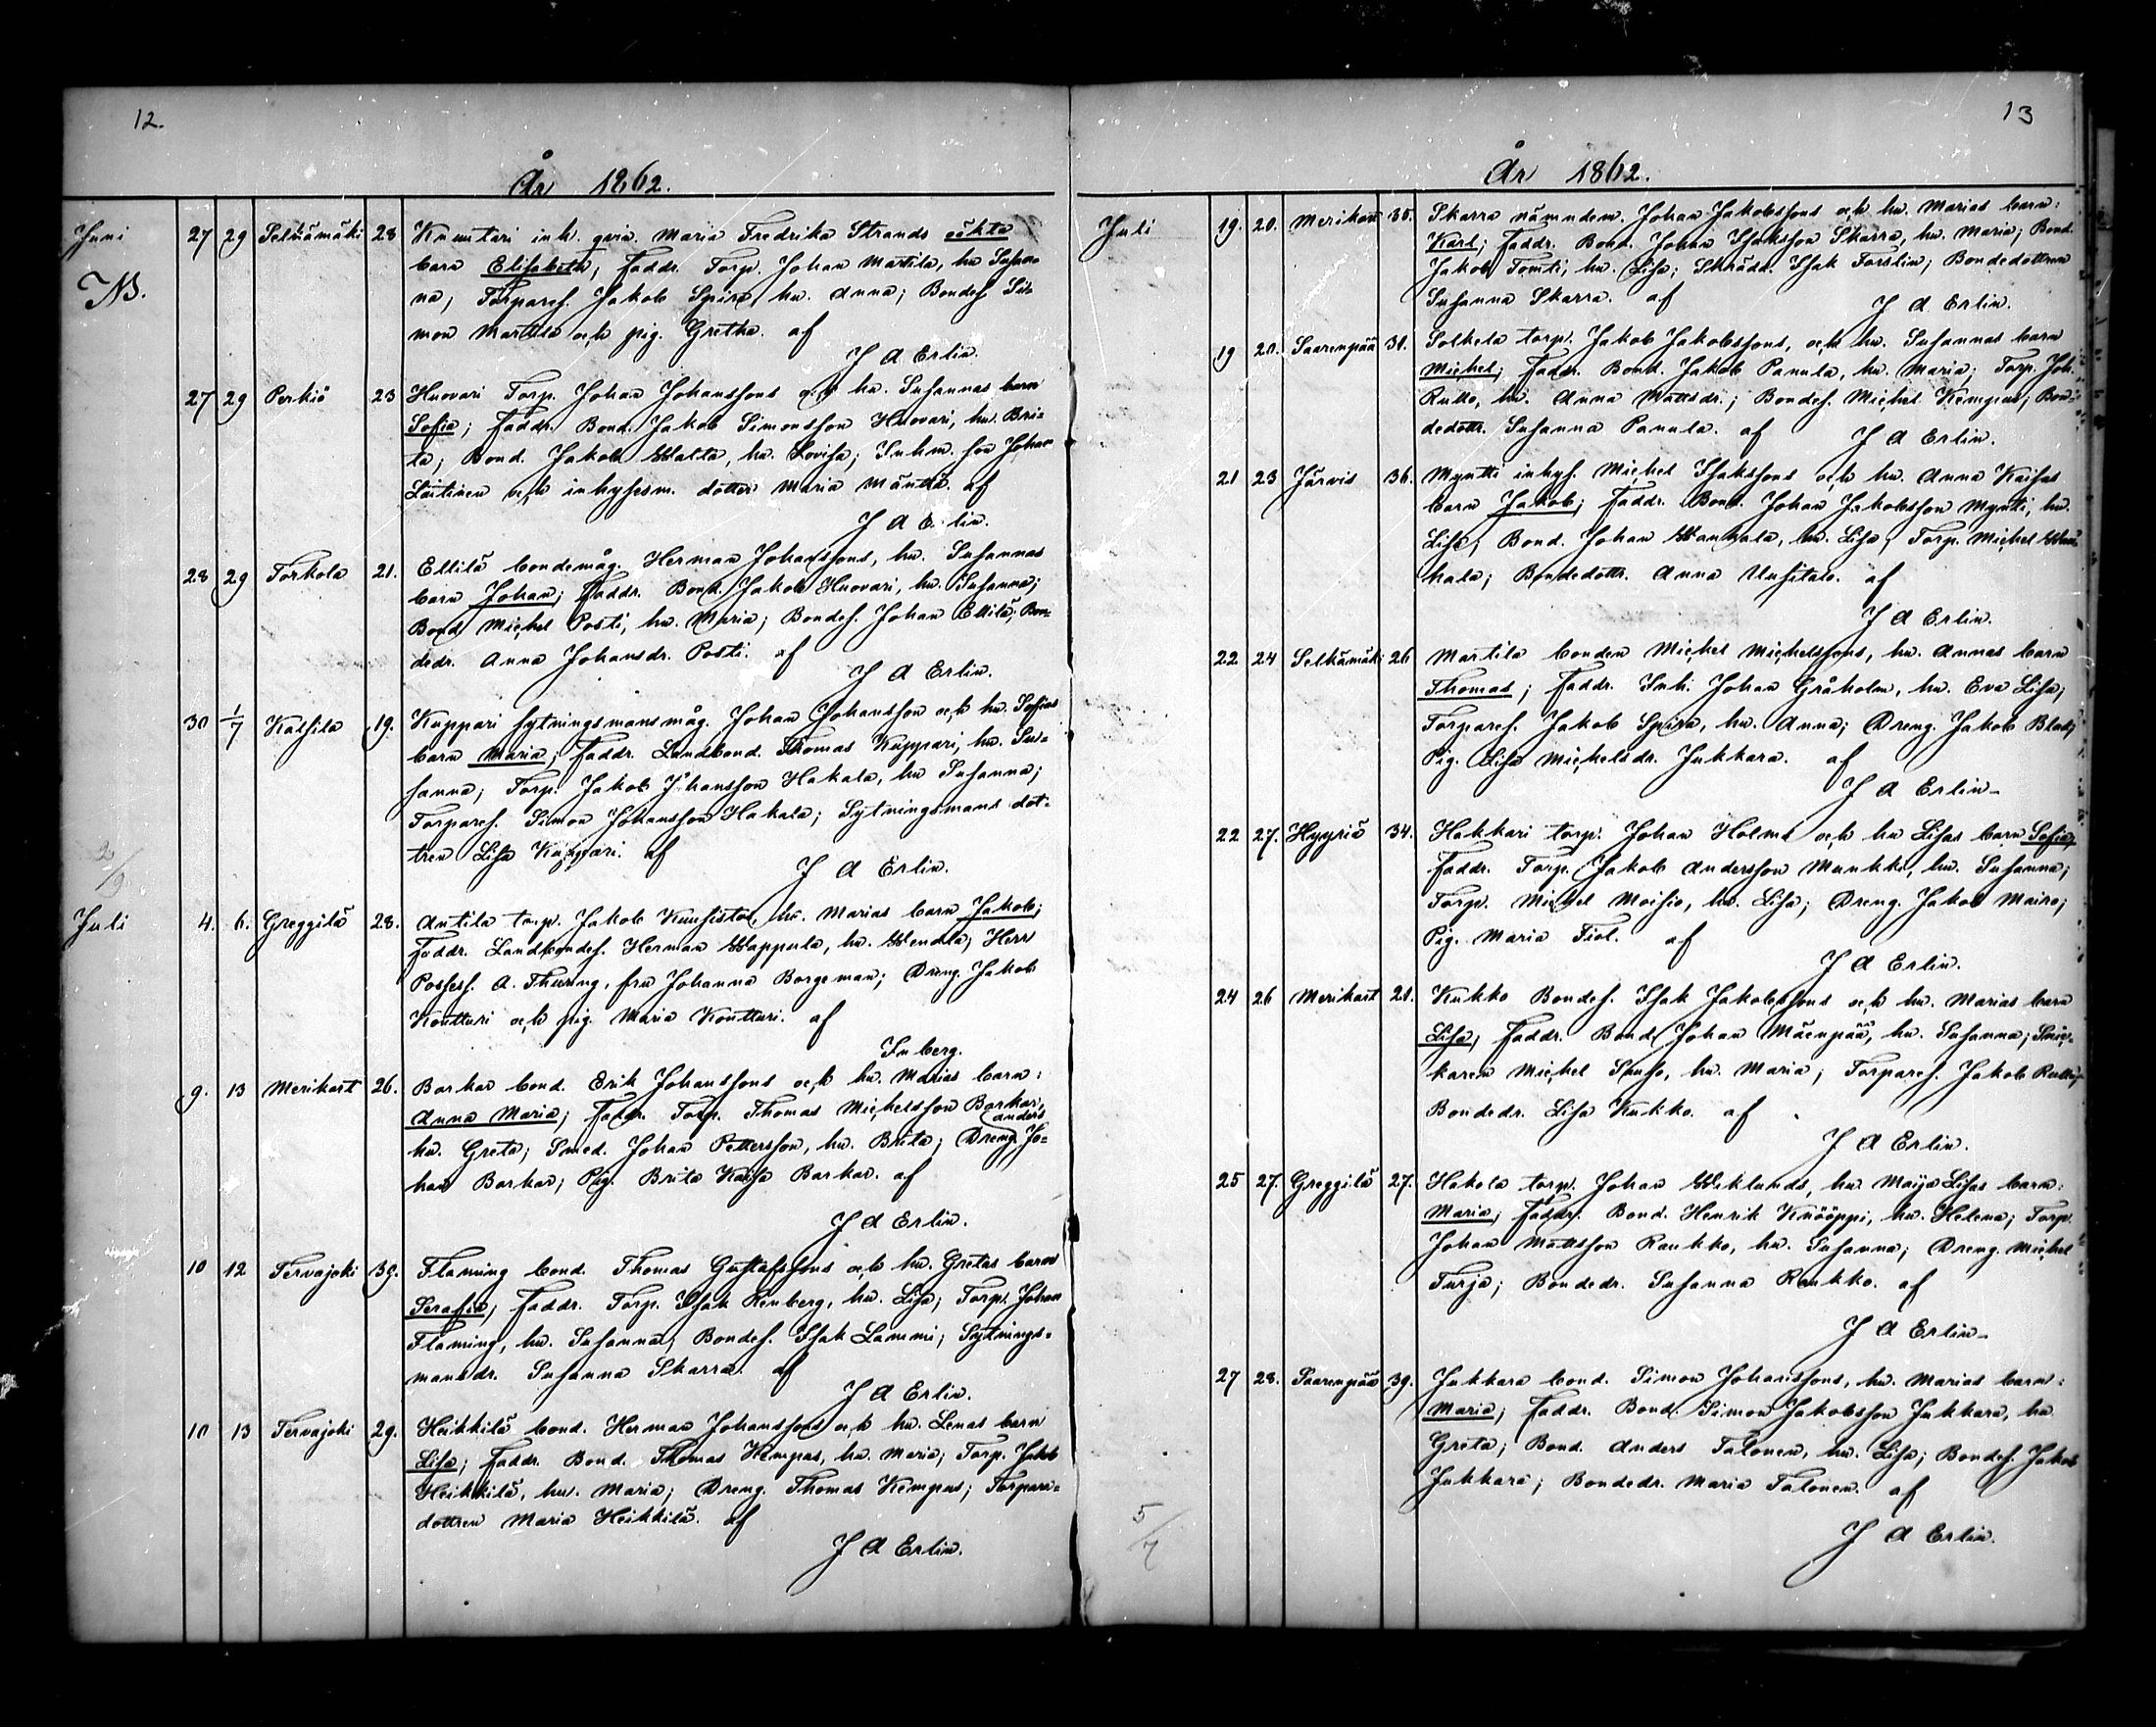 12.
År 1862.
Juni 27 29 Selkämäki 28 Knuutari inh. qvin. Maria Fredrika Strands oäkta
NB. barn Elisabeta; Faddr. Torp. Johan Martila, hu Susan-
na; Torpares. Jakob Spira, hu. Anna; Bondes. Si-
mon Martila och pig. Gretha. af
J A Erlin.
27 29 Perkiö 23 Huovari Torp. Johan Johanssons och hu. Susannas barn
Sofia; Faddr. Bond. Jakob Simonsson Huovari, hu. Bri-
ta; Bond. Jakob Walta, hu. Lovisa; Inhm. son Johan
Laitinen och inhysesm. dotter Maria Mäntä. af
J A Erlin.
28 29 Torkola 21. Ellilä bondemåg. Herman Johanssons, hu. Susannas
barn Johan; Faddr. Bond. Jakob Huovari, hu. Susanna;
Bond Michel Posti, hu. Maria; Bondes. Johan Ellilä; Bon-
dedr. Anna Johansdr. Posti. af
J A Erlin.
30 1/7 Kalsila 19. Kuppari sytningsmansmåg. Johan Johansson och hu. Sofias
barn Maria; Faddr. Landbond. Thomas Kuppari, hu. Su-
sanna; Torp. Jakob Johansson Hakala, hu Susanna;
Torpares. Simon Johansson Hakala; Sytningsmans dot-
tren Lisa Kuppari. af
2/9
J A Erlin.
Juli 4. 6. Greggilä 28. Antila torp. Jakob Kuusisto, hu. Marias barn Jakob;
Faddr. Landbondes. Herman Wappula, hu. Wendla; Herr
Possess. A. Thuring, fru Johanna Borgeman; Dreng. Jakob
Kontturi och pig. Maria Kontturi. af
Inberg.
9. 13 Merikart 26. Barkar bond. Erik Johanssons och hu. Marias barn:
Anna Maria; Faddr. Torp. Thomas Michelsson Barkar,
anders
hu. Greta; Smed. Johan Pettersson, hu. Brita; Dreng. Jo-
han Barkar; Pig. Brita Kaisa Barkar. af
J A Erlin.
10 12 Tervajoki 39. Flaming bond. Thomas Gustafssons och hu. Gretas barn
Serafia; Faddr. Torp. Isak Renberg, hu. Lisa; Torp. Johan
Flaming, hu. Susanna; Bondes. Isak Lammi; Sytnings-
mansdr. Susanna Skarra. af
J A Erlin.
10 13 Tervajoki 29. Heikkilä bond. Herman Johanssons och hu. Lenas barn
Lisa; Faddr. Bond. Thomas Kempas, hu. Maria; Torp. Jakob
Heikkilä, hu. Maria; Dreng. Thomas Kempas; Torpare-
dottren Maria Heikkilä. af
J A Erlin.
13
År 1862.
Juli 19. 20. Merikart 35. Skarra nämndem. Johan Jakobssons och hu. Marias barn:
Karl; Faddr. Bond. Johan Isaksson Skarra, hu. Maria; Bond.
Jakob Tomti, hu. Lisa; Skrädd. Isak Forslin; Bondedottren
Susanna Skarra. af
J A Erlin.
19 20. Saarenpää 31. Solkela torp. Jakob Jakobssons, och hu. Susannas barn
Michel; Faddr. Bond. Jakob Panula, hu. Maria; Torp. Joh.
Rullo, hu. Anna Mattsdr.; Bondes. Michel Kempas; Bon-
dedottr. Susanna Panula. af
J A Erlin.
21 23 Järvis 36. Myntti inhys. Michel Isakssons och hu. Anna Kaisas
barn Jakob; Faddr. Bond. Johan Jakobsson Myntti, hu.
Lisa; Bond. Johan Wanhala, hu. Lisa; Torp. Michel Wan-
hala; Bondedottr. Anna Uusitalo. af
J A Erlin.
22 24 Selkämäki 26 Martila bonden Michel Michelssons, hu. Annas barn
Thomas; Faddr. Inh. Johan Gråholm, hu. Eva Lisa;
Torpares. Jakob Spira, hu. Anna; Dreng. Jakob Blad;
Pig. Lisa Michelsdr. Jukkara. af
J A Erlin.
22 27. Hyyriä 34. Hakkari torp. Johan Holms och hu Lisas barn Sofia;
Faddr. Torp. Jakob Andersson Munkki, hu. Susanna;
Torp. Michel Moisio, hu. Lisa; Dreng. Jakob Mairo;
Pig. Maria Fiol. af
J A Erlin.
24 26 Merikart 21. Kukko Bondes. Isak Jakobssons och hu. Marias barn
Lisa; Faddr. Bond Johan Mäenpää, hu. Susanna; Snic-
karen Michel hu. Maria; Torpares. Jakob Rullo;
Bondedr. Lisa Kukko. af
J A Erlin.
25 27. Greggilä 27. Hakola torp. Johan Wiklunds, hu. Maija Lisas barn:
Maria; Faddr. Bond. Henrik Knööppi, hu. Helena; Torp.
Johan Mattsson Raukko, hu. Susanna; Dreng. Michel
Turja; Bondedr. Susanna Raukko. af
J A Erlin.
27 28. Saarenpää 39. Jukkara bond. Simon Johanssons, hu. Marias barn:
Maria; Faddr. Bond. Simon Jakobsson Jukkara, hu
Greta; Bond. Anders Talonen, hu. Lisa; Bondes. Jakob
Jukkara; Bondedr. Maria Talonen. af
5/7
J A Erlin.